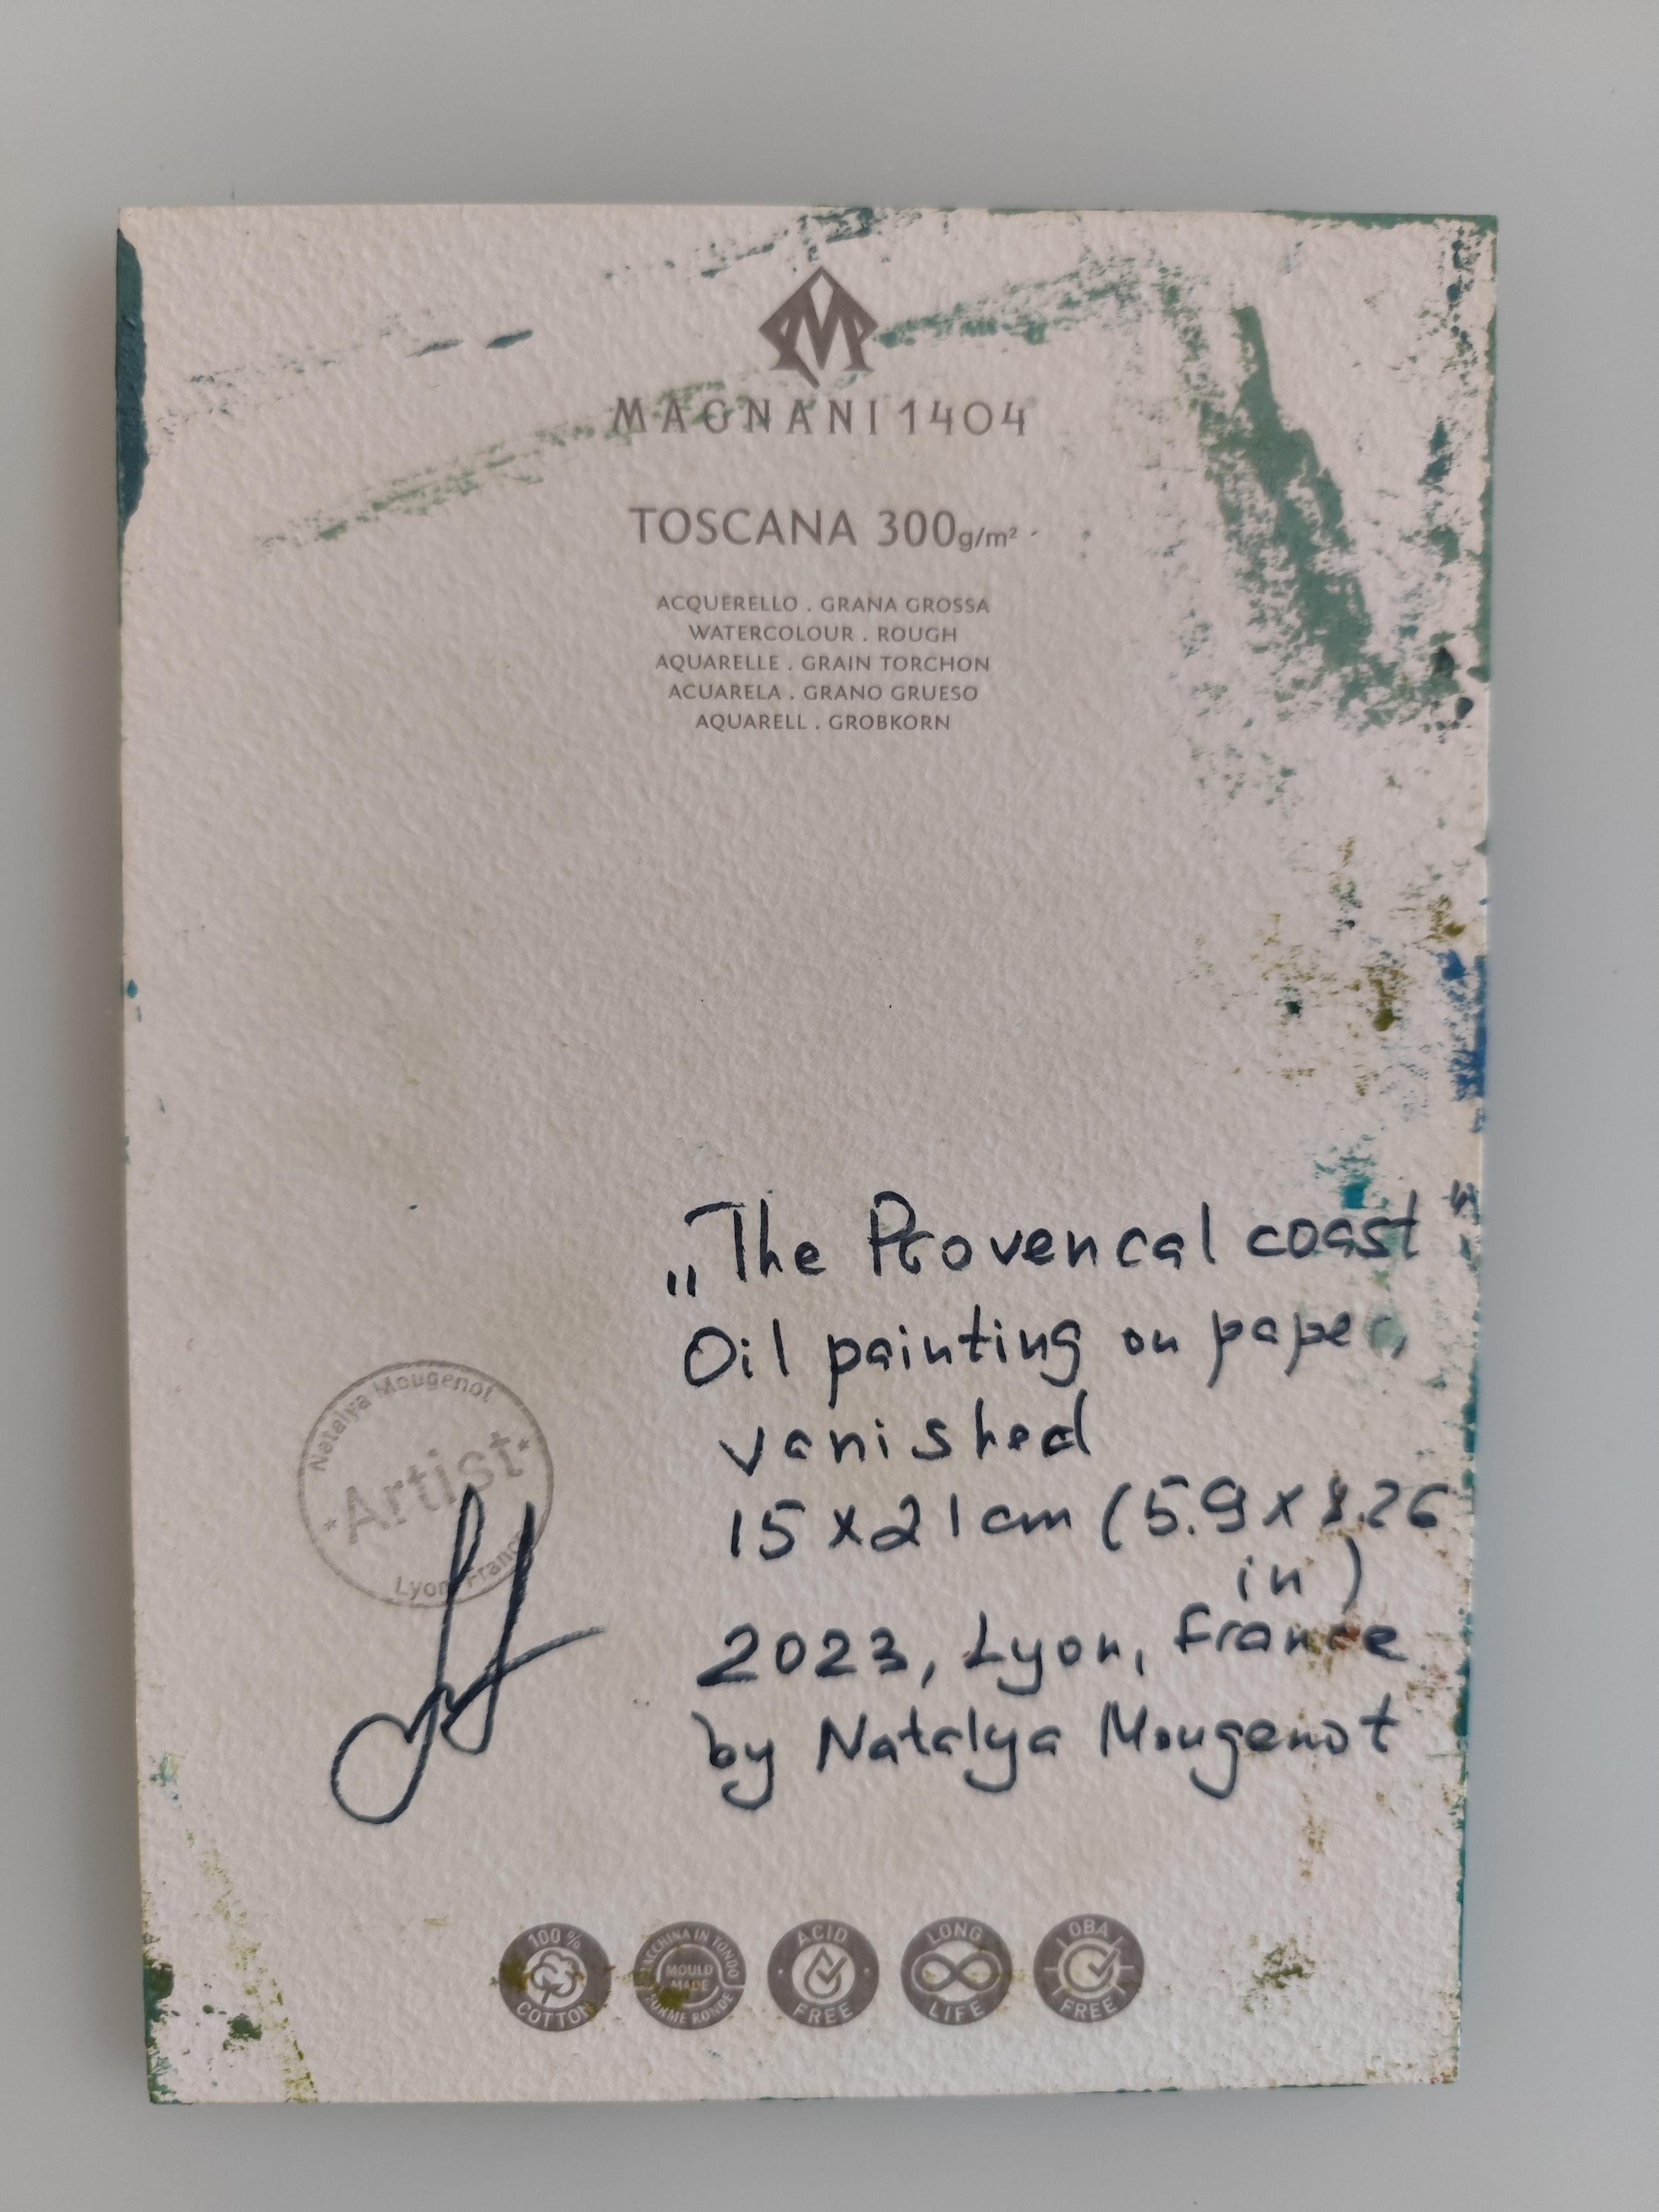 MAGNANI 1404
TOSCANA 300g/m²
ACQUERELLO . GRANA GROSSA
WATERCOLOUR . ROUGH
AQUARELLE . GRAIN TORCHON
ACUARELA . GRANO GRUESO
AQUARELL . GROBKORN
„The Provencal coast"
Oil painting on paper,
vanished
15 x 21 cm (5.9 x 8.26
in)
2023, Lyon, France
by Natalya Mougenot
Natalya Mougenot
*Artist*
Lyon France
100% COTTON
MACCHINA IN TONDO
MOULD
MADE
FORME RONDE
ACID FREE
LONG LIFE
OBA FREE